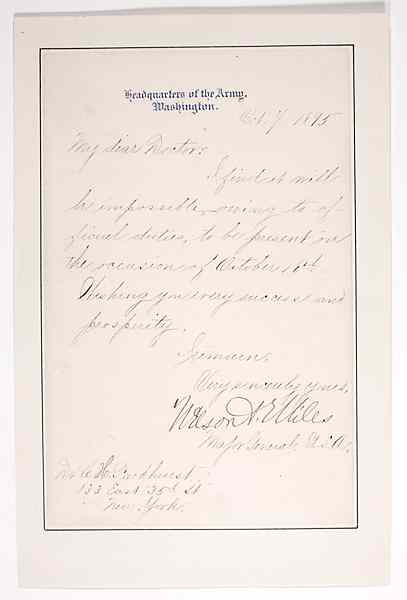 Headquarters of the Army,
Washington.
Oct. 7 1895
My dear Doctor:
I find it will
be impossible, owing to of-
ficial duties, to be present on
the occasion of October 16th.
Wishing you every success and
prosperity,
I remain,
Very sincerely yours,
Nelson A. Miles
Major General, U.S.A.
Dr. C. H. Parkhurst,
133 East 35th St
New York.